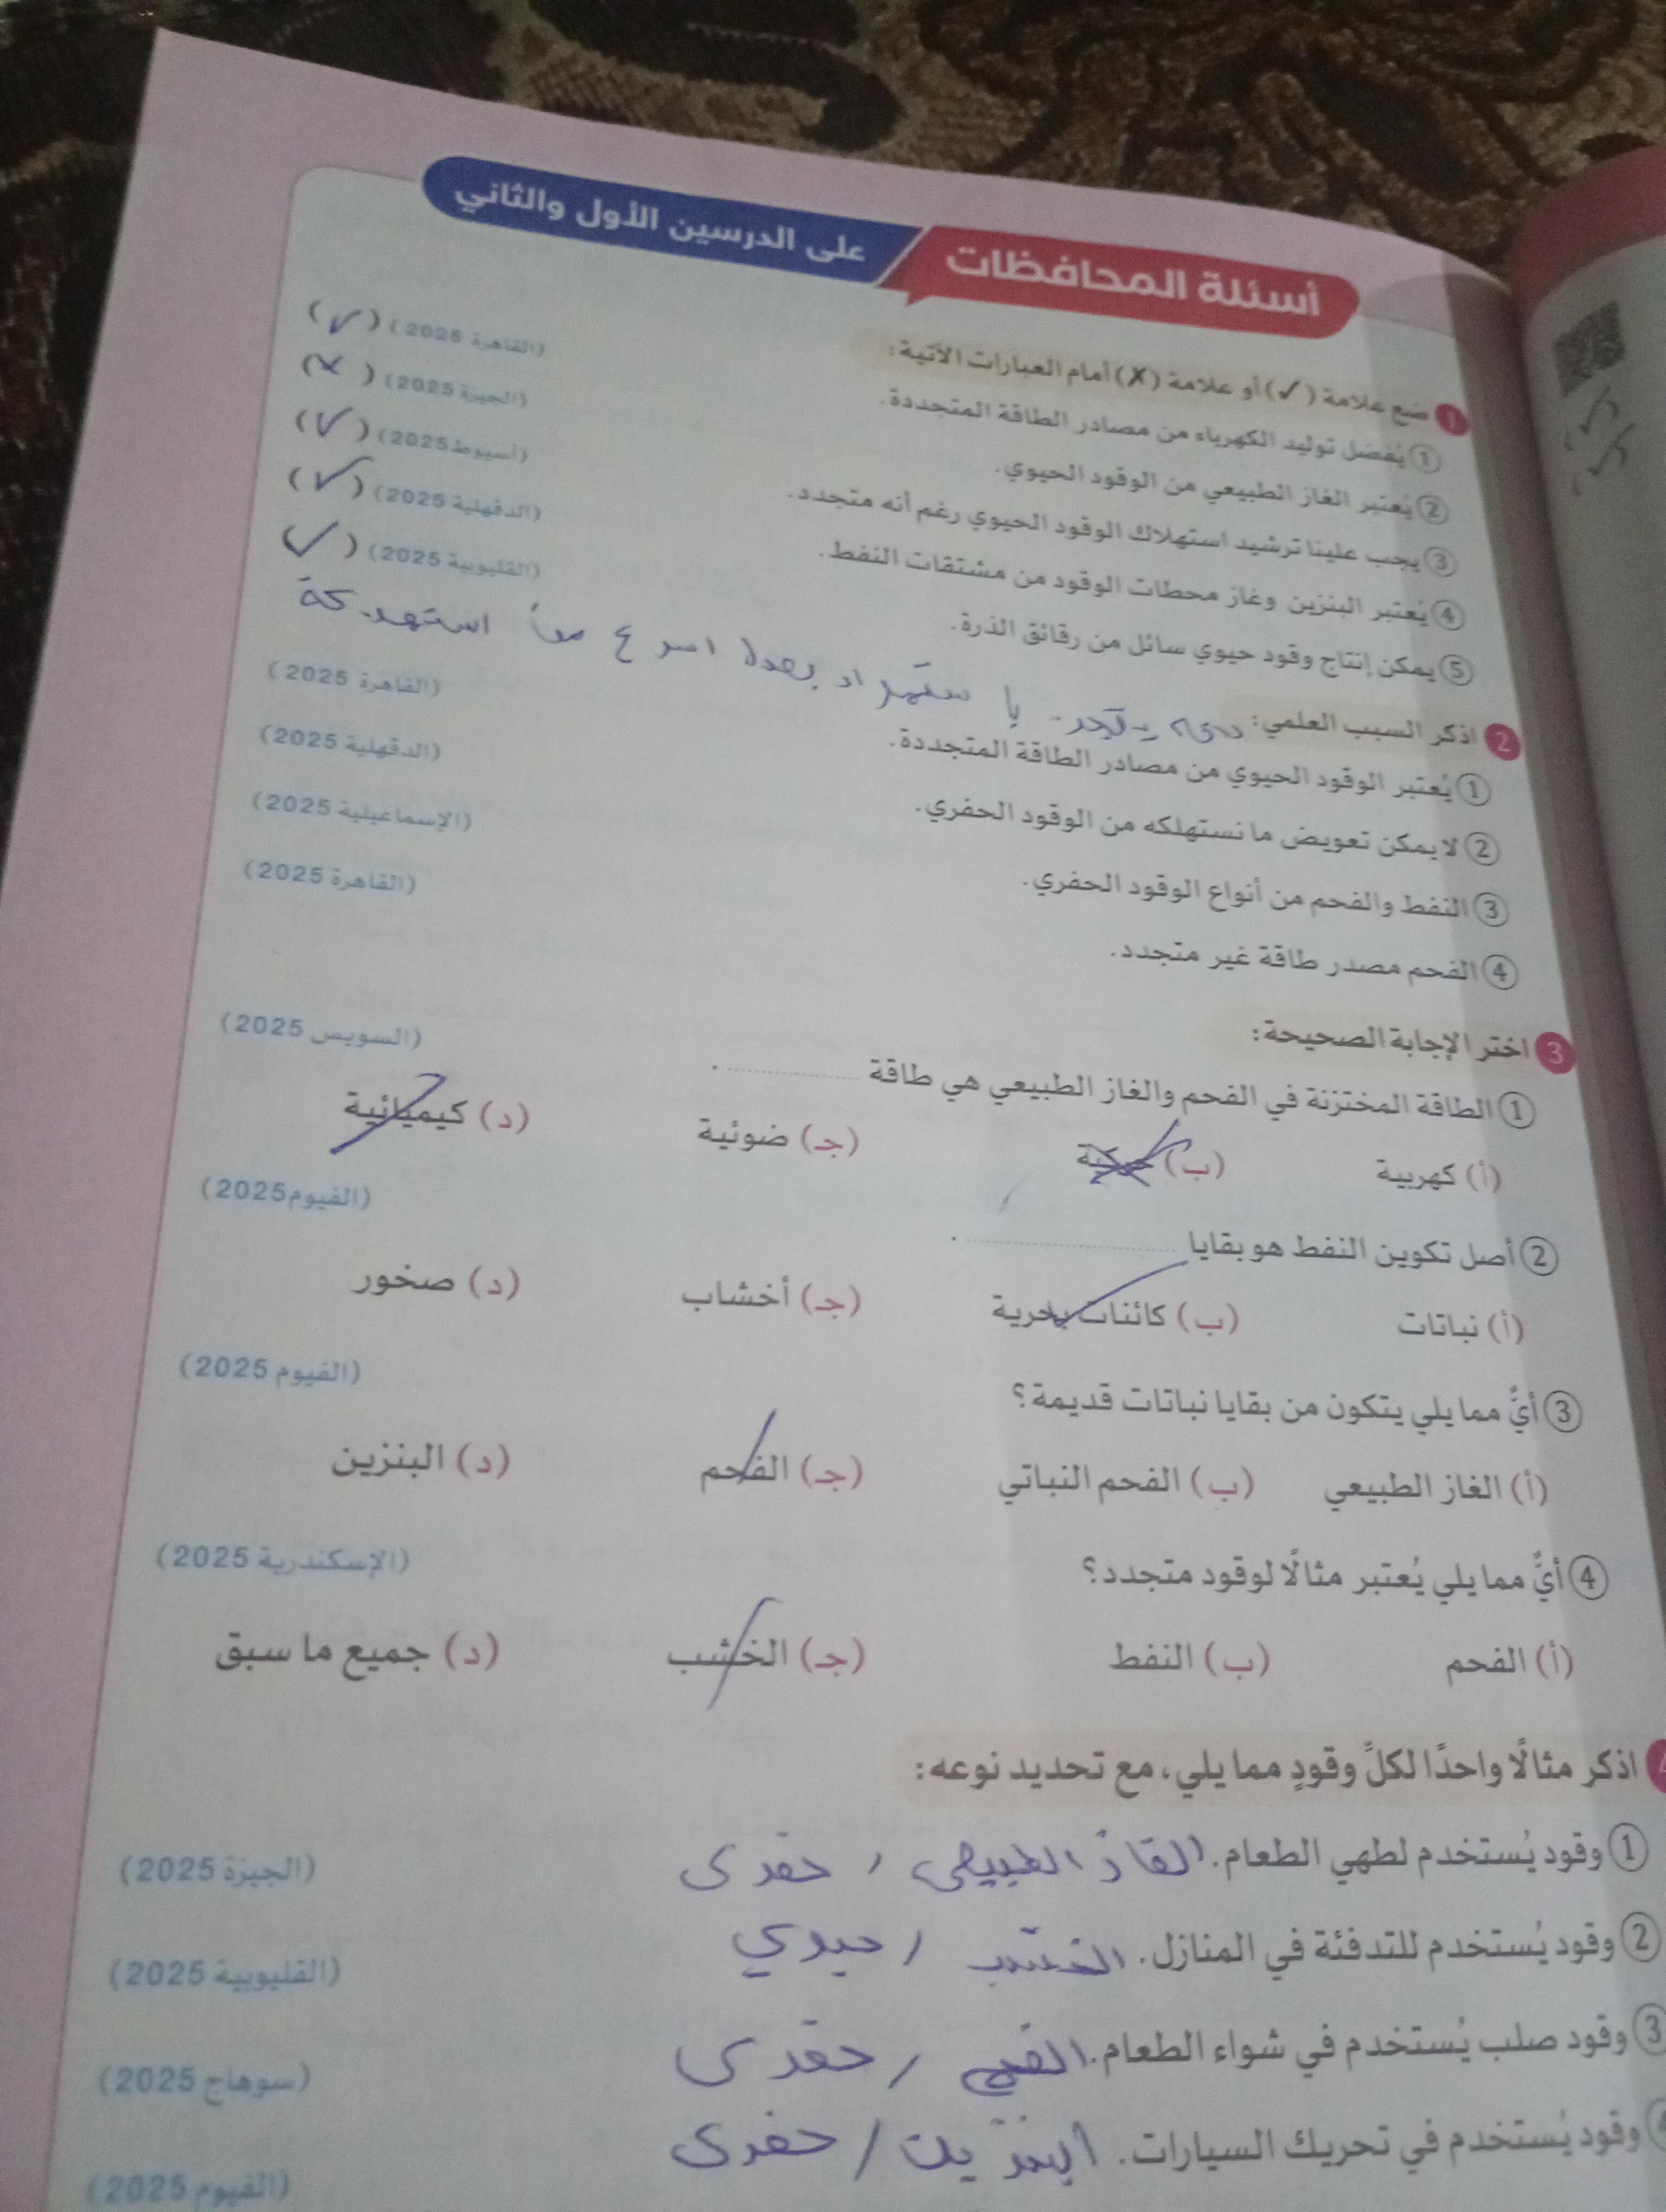 أسئلة المحافظات على الدرسين الأول والثاني
1 ضع علامة (✓) أو علامة (✗) أمام العبارات الآتية:
① يُفضل توليد الكهرباء من مصادر الطاقة المتجددة. (القاهرة 2025) (✓)
② يُعتبر الغاز الطبيعي من الوقود الحيوي. (الجيزة 2025) (✗)
③ يجب علينا ترشيد استهلاك الوقود الحيوي رغم أنه متجدد. (أسيوط 2025) (✓)
④ يُعتبر البنزين وغاز محطات الوقود من مشتقات النفط. (الدقهلية 2025) (✓)
⑤ يمكن إنتاج وقود حيوي سائل من رقائق الذرة. (القليوبية 2025) (✓)
2 اذكر السبب العلمي: باستمرار اسرع
① يُعتبر الوقود الحيوي من مصادر الطاقة المتجددة. (القاهرة 2025)
② لا يمكن تعويض ما نستهلكه من الوقود الحفري. (الدقهلية 2025)
③ النفط والفحم من أنواع الوقود الحفري. (الإسماعيلية 2025)
④ الفحم مصدر طاقة غير متجدد. (القاهرة 2025)
3 اختر الإجابة الصحيحة:
① الطاقة المختزنة في الفحم والغاز الطبيعي هي طاقة ............ . (السويس 2025)
(أ) كهربية (ب) حركية (جـ) ضوئية (د) كيميائية
② أصل تكوين النفط هو بقايا ............ . (الفيوم 2025)
(أ) نباتات (ب) كائنات بحرية (جـ) أخشاب (د) صخور
③ أيٌّ مما يلي يتكون من بقايا نباتات قديمة؟ (الفيوم 2025)
(أ) الغاز الطبيعي (ب) الفحم النباتي (جـ) الفحم (د) البنزين
④ أيٌّ مما يلي يُعتبر مثالًا لوقود متجدد؟ (الإسكندرية 2025)
(أ) الفحم (ب) النفط (جـ) الخشب (د) جميع ما سبق
4 اذكر مثالًا واحدًا لكلِّ وقودٍ مما يلي، مع تحديد نوعه:
① وقود يُستخدم لطهي الطعام. الغاز الطبيعى / حفرى (الجيزة 2025)
② وقود يُستخدم للتدفئة في المنازل. الخشب / حيوي (القليوبية 2025)
③ وقود صلب يُستخدم في شواء الطعام. الفحم / حفرى (سوهاج 2025)
④ وقود يُستخدم في تحريك السيارات. البنزين / حفرى (الفيوم 2025)